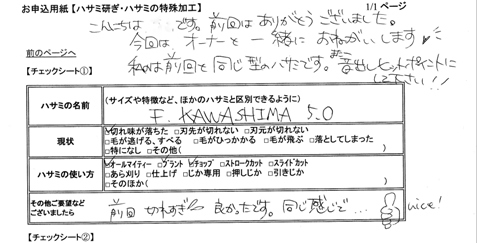 お申込用紙【ハサミ研ぎ・ハサミの特殊加工】
1/1 ページ
こんにちは です。前回はありがとうございました。
今回はオーナーと一緒におねがいします
前のページへ
私のは前回と同じ型のハサミです。また音出しヒットポイントにして下さい!!
【チェックシート①】
ハサミの名前
(サイズや特徴など、ほかのハサミと区別できるように)
F. KAWASHIMA 5.0
現状
☑切れ味が落ちた □刃先が切れない □刃元が切れない
□毛が逃げる、すべる □毛がひっかかる □毛が飛ぶ □落としてしまった
□特になし □その他( )
ハサミの使い方
☑オールマイティー ☑ブラント ☑チョップ □ストロークカット □スライドカット
□あら刈り □仕上げ □じか専用 □押しじか □引きじか
□そのほか( )
その他ご要望などございましたら
前回 切れすぎ 良かったです。同じ感じで… nice!
【チェックシート②】